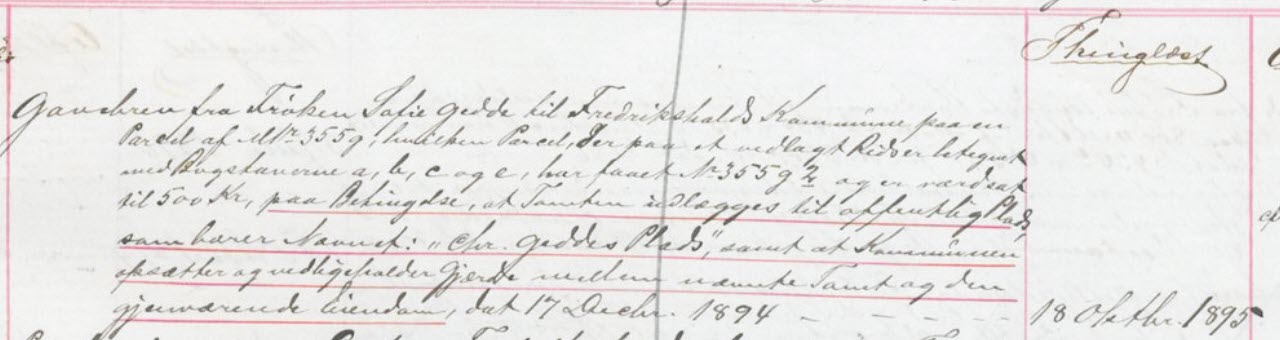 Thinglæst
Gavebrev fra Frøken Sofie Gedde til Fredrikshalds Kommune paa en
Parcel af Mtr. 355g, hvilken Parcel, der paa et vedlagt Rids er betegnet
med Bogstaverne a, b, c og e, har faaet Nr. 355g 2 og er værdsat
til 500 Kr, paa Betingelse, at Tomten udlægges til offentlig Plads,
som bærer Navnet: "Chr. Geddes Plads", samt at Kommunen
opsætter og vedligeholder Gjærde mellem nævnte Tomt og den
gjenværende Eiendom, dat 17 Decbr. 1894 18 Oktbr. 1895